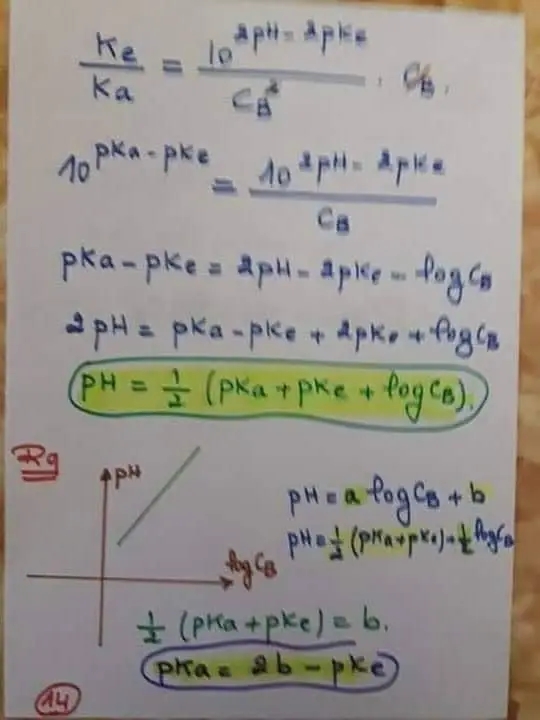 Ke/Ka = 10^(2pH - 2pKe) / C_B² . C_B.
10^(pKa - pKe) = 10^(2pH - 2pKe) / C_B
pKa - pKe = 2pH - 2pKe - log C_B
2pH = pKa - pKe + 2pKe + log C_B
pH = 1/2 (pKa + pKe + log C_B).
Rq
pH
pH = a log C_B + b
pH = 1/2 (pKa + pKe) + 1/2 log C_B
log C_B
1/2 (pKa + pKe) = b.
pKa = 2b - pKe
14